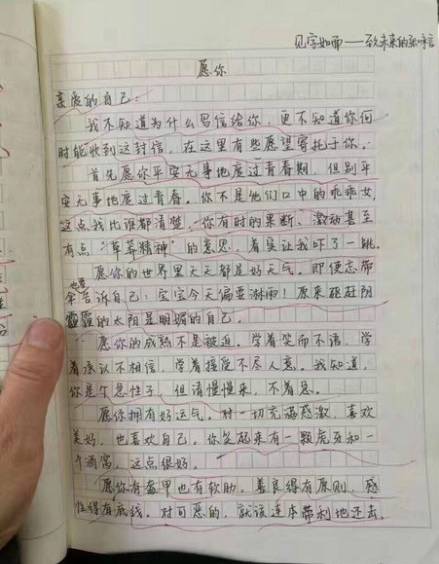 见字如面——致未来的
愿你
亲爱的自己:
我不知道为什么写信给你,更不知道你何
时能收到这封信,在这里有些愿望寄托于你。
首先愿你平安无事地度过青春期,但别平
安无事地度过青春。你不是他们口中的乖乖女,
这点我比谁都清楚,你有时的果断、激动甚至
有点“草莽精神”的意思,着实让我吓了一跳。
愿你的世界里天天都是好天气。即便忘带
伞也要告诉自己:宝宝今天偏要淋雨!原来赶
的太阳是明媚的自己。
愿你的成熟不是被迫。学着笑而不语,学
着承认不相信,学着接受不尽人意。我知道,
你是个急性子,但请慢慢来,不着急。
愿你拥有好运气。对一切充满感激,喜欢
美好,也喜欢自己。你笑起来有一颗虎牙和一
个酒窝,这点很好。
愿你有盔甲也有软肋。善良得有原则,感
性得有底线。对可恶的,就该连本带利地还去。